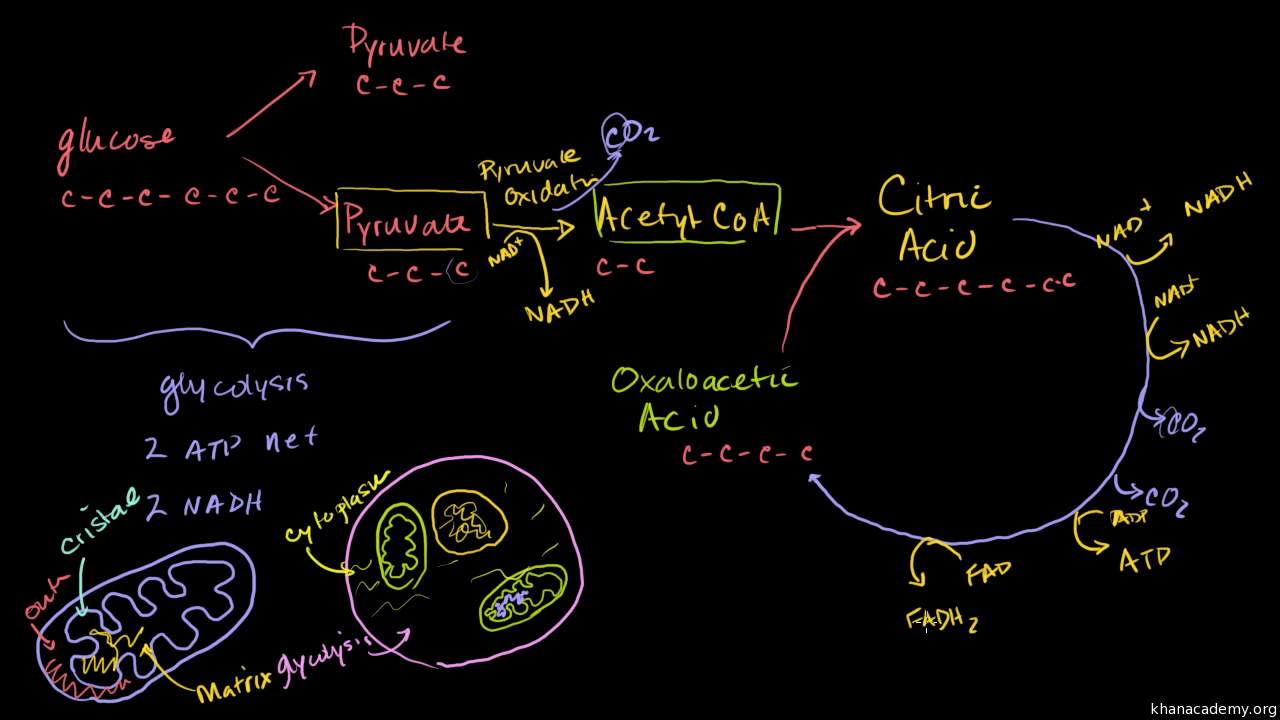 Pyruvate
C-C-C
glucose
C-C-C-C-C-C
Pyruvate
C-C-C
Pyruvate
Oxidatin
CO2
NAD+
NADH
Acetyl CoA
C-C
Citric
Acid
C-C-C-C-C-C
NAD+
NADH
NAD+
NADH
CO2
CO2
ADP
ATP
FAD
FADH2
Oxaloacetic
Acid
C-C-C-C
glycolysis
2 ATP net
2 NADH
cristae
cytoplasm
Matrix
glycolysis
khanacademy.org